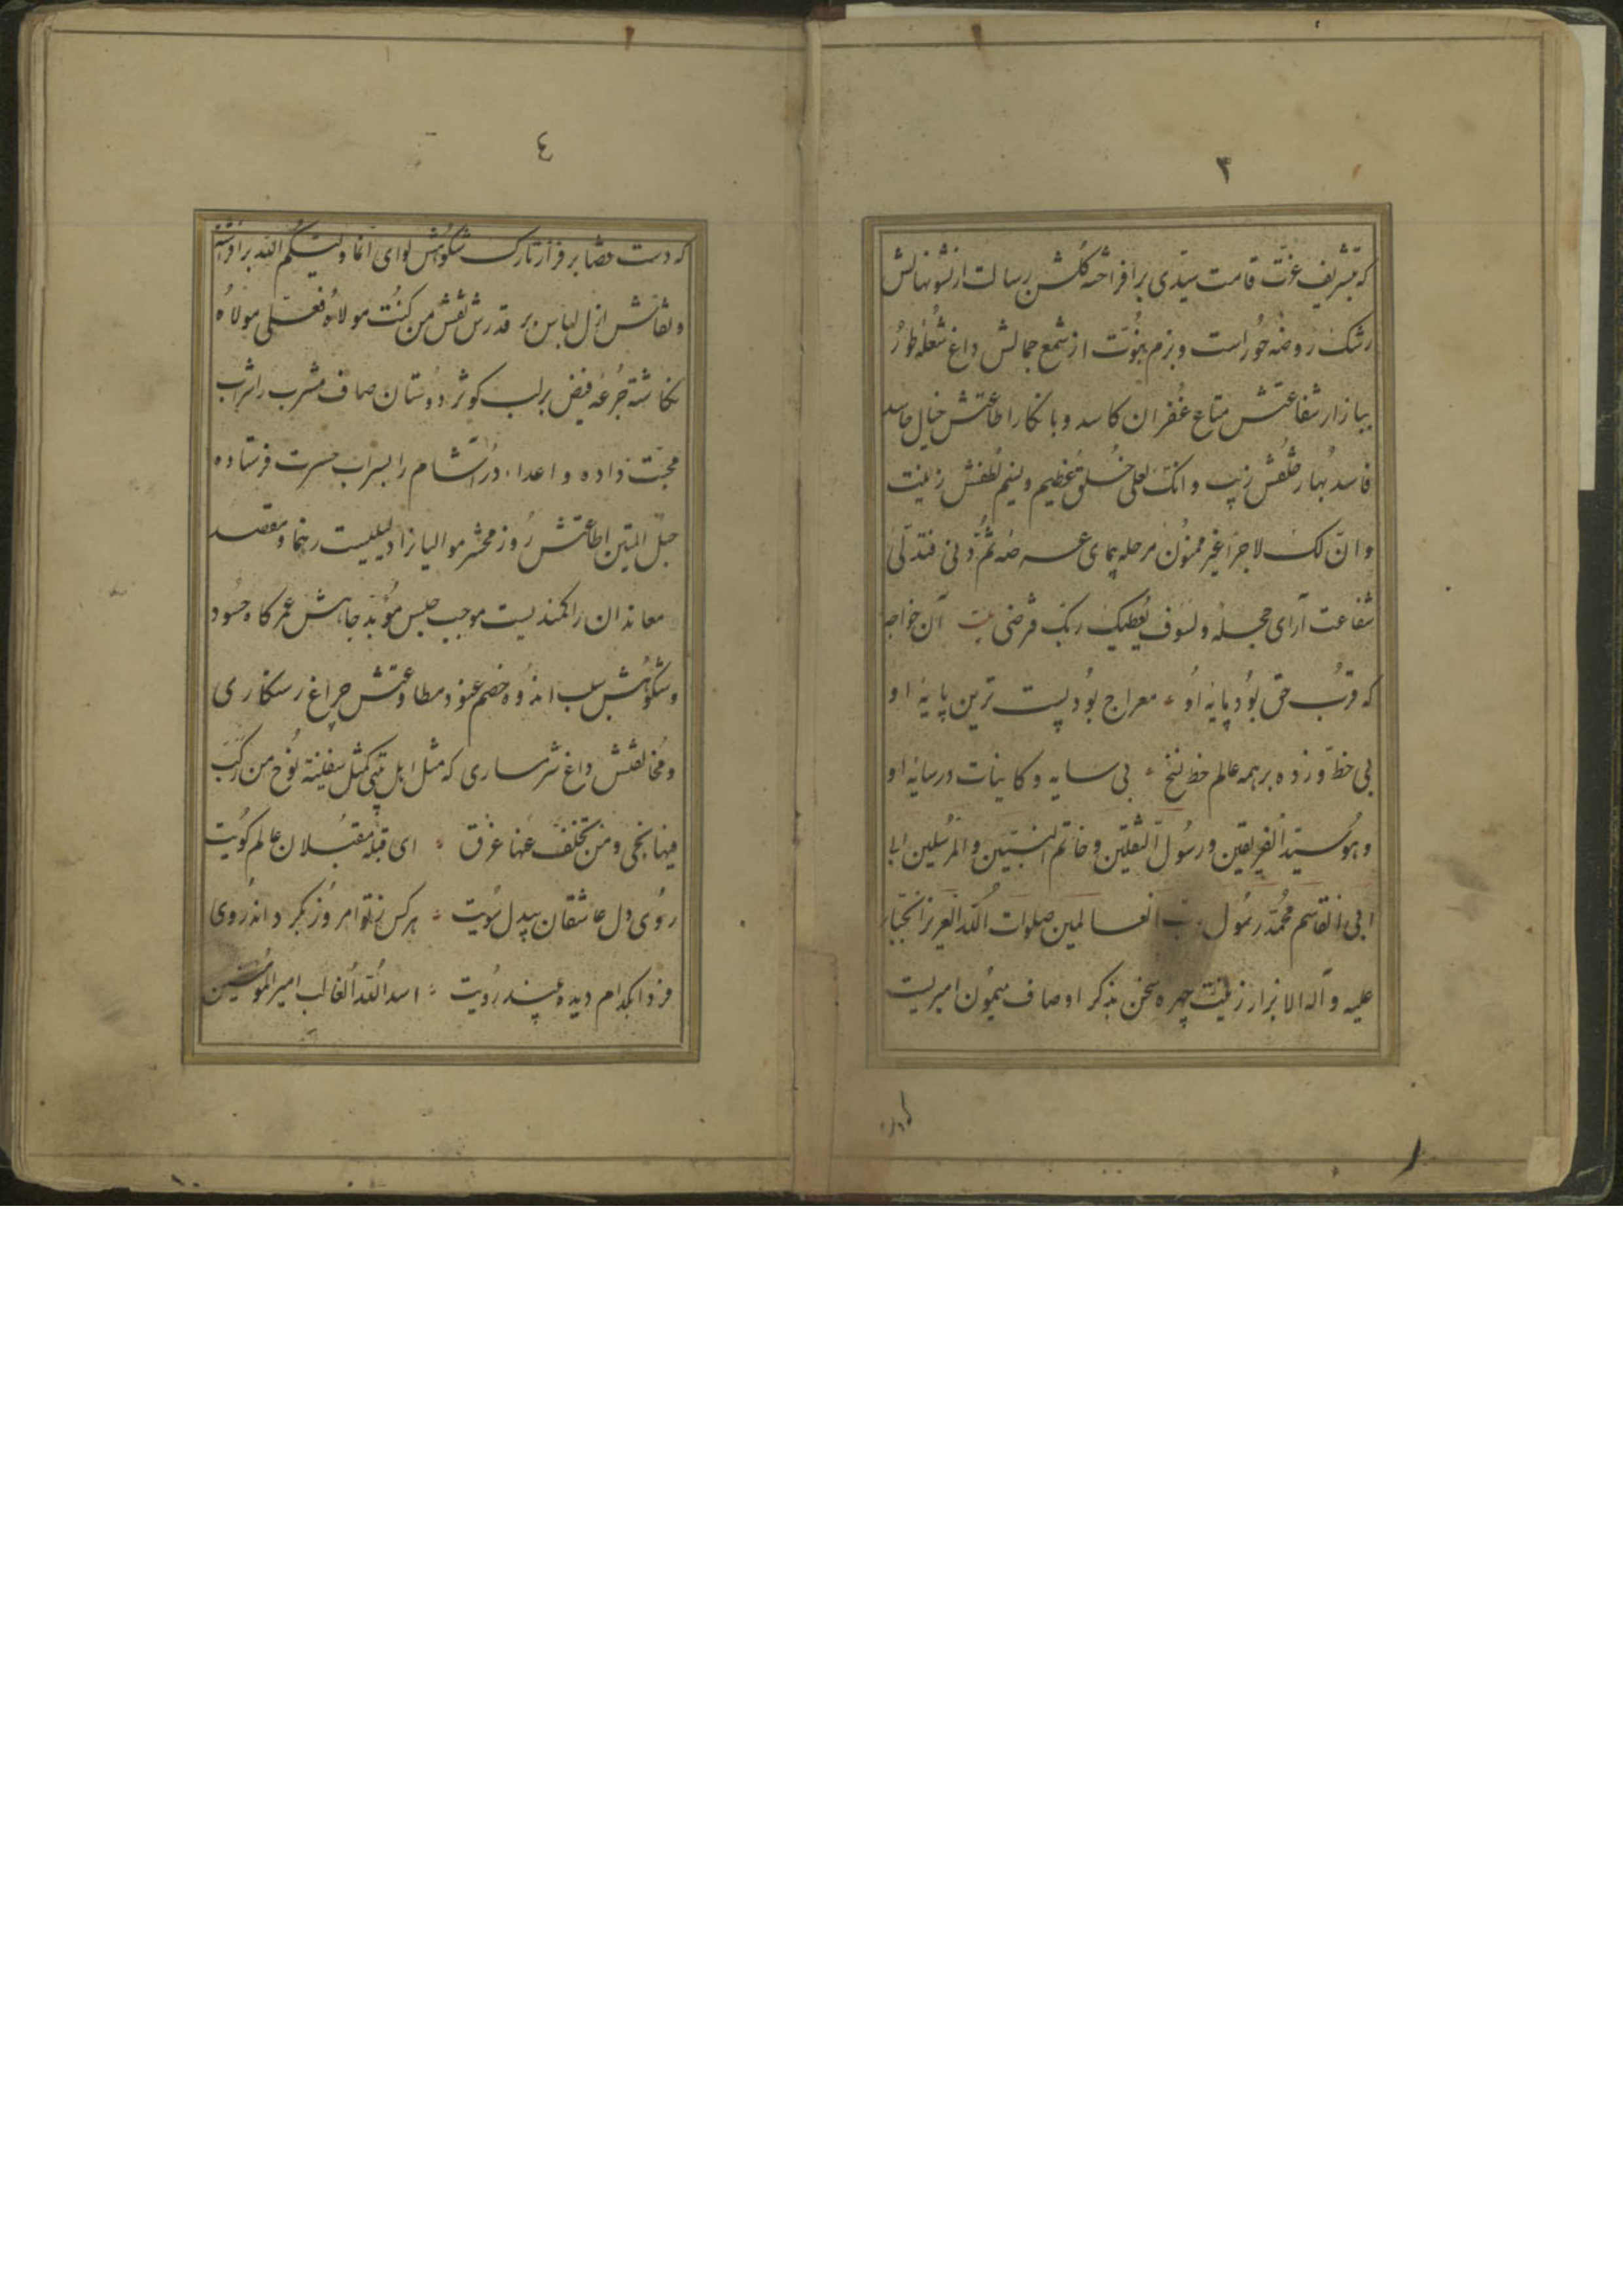 ۳
که تشریف عزت قامت سیّدی برافراشته گلشن رسالت از نشو نهالش
رشک روضه حوراست و بزم نبوّت از شمع جمالش داغ شعله طور
ببازار شفاعتش متاع غفران کاسد و بانکار اطاعتش خیال حاسد
فاسد بهار خلقش زیب و انک لعلی خلق عظیم و نسیم لطفش زینت
و انّ لک لاجراً غیر ممنون مرحله پیمای عرصه ثمّ دنی فتدلّی
شفاعت آرای حجله و لسوف یعطیک ربک فترضی بیت آن خواجه
که قرب حق بود پایه او معراج بود پست ترین پایه او
بی خط و زده بر همه عالم خط نسخ بی سایه و کاینات در سایه او
و هو سیّد الفریقین و رسول الثقلین و خاتم النبیّین و المرسلین
ابی القاسم محمّد رسول ربّ العالمین صلوات اللّه العزیز الجبّار
علیه و آله الابرار زینت چهره سخن بذکر اوصاف میمون امیریست
٤
که دست قضا بر فراز تارک شکوهش لوای انّما ولیّکم اللّه برافراشته
و نقاش ازل لباس بر قدرش نقش من کنت مولاه فعلی مولاه
نکاشته جرعه فیض بر لب کوثر دوستان صاف مشرب را شراب
محبّت داده و اعداء درد آشام را بسراب حسرت فرستاده
حبل المتین اطاعتش روز محشر موالیانرا دلیلیست رهنما و مقصد
معاندان را کمندیست موجب حبس مؤبّد جاهش عمر کاه حسود
و شکوهش سبب اندوه خصم عنود مطاوعتش چراغ رستکاری
و مخالفتش داغ شرمساری که مثل اهل بیتی کمثل سفینة نوح من رکب
فیها نجی و من تخلّف عنها غرق ای قبله مقبلان عالم کویت
روی دل عاشقان بیدل سویت هر کس ز تو امروز بکرداند روی
فردا بکدام دیده بیند رویت اسد اللّه الغالب امیر المؤمنین